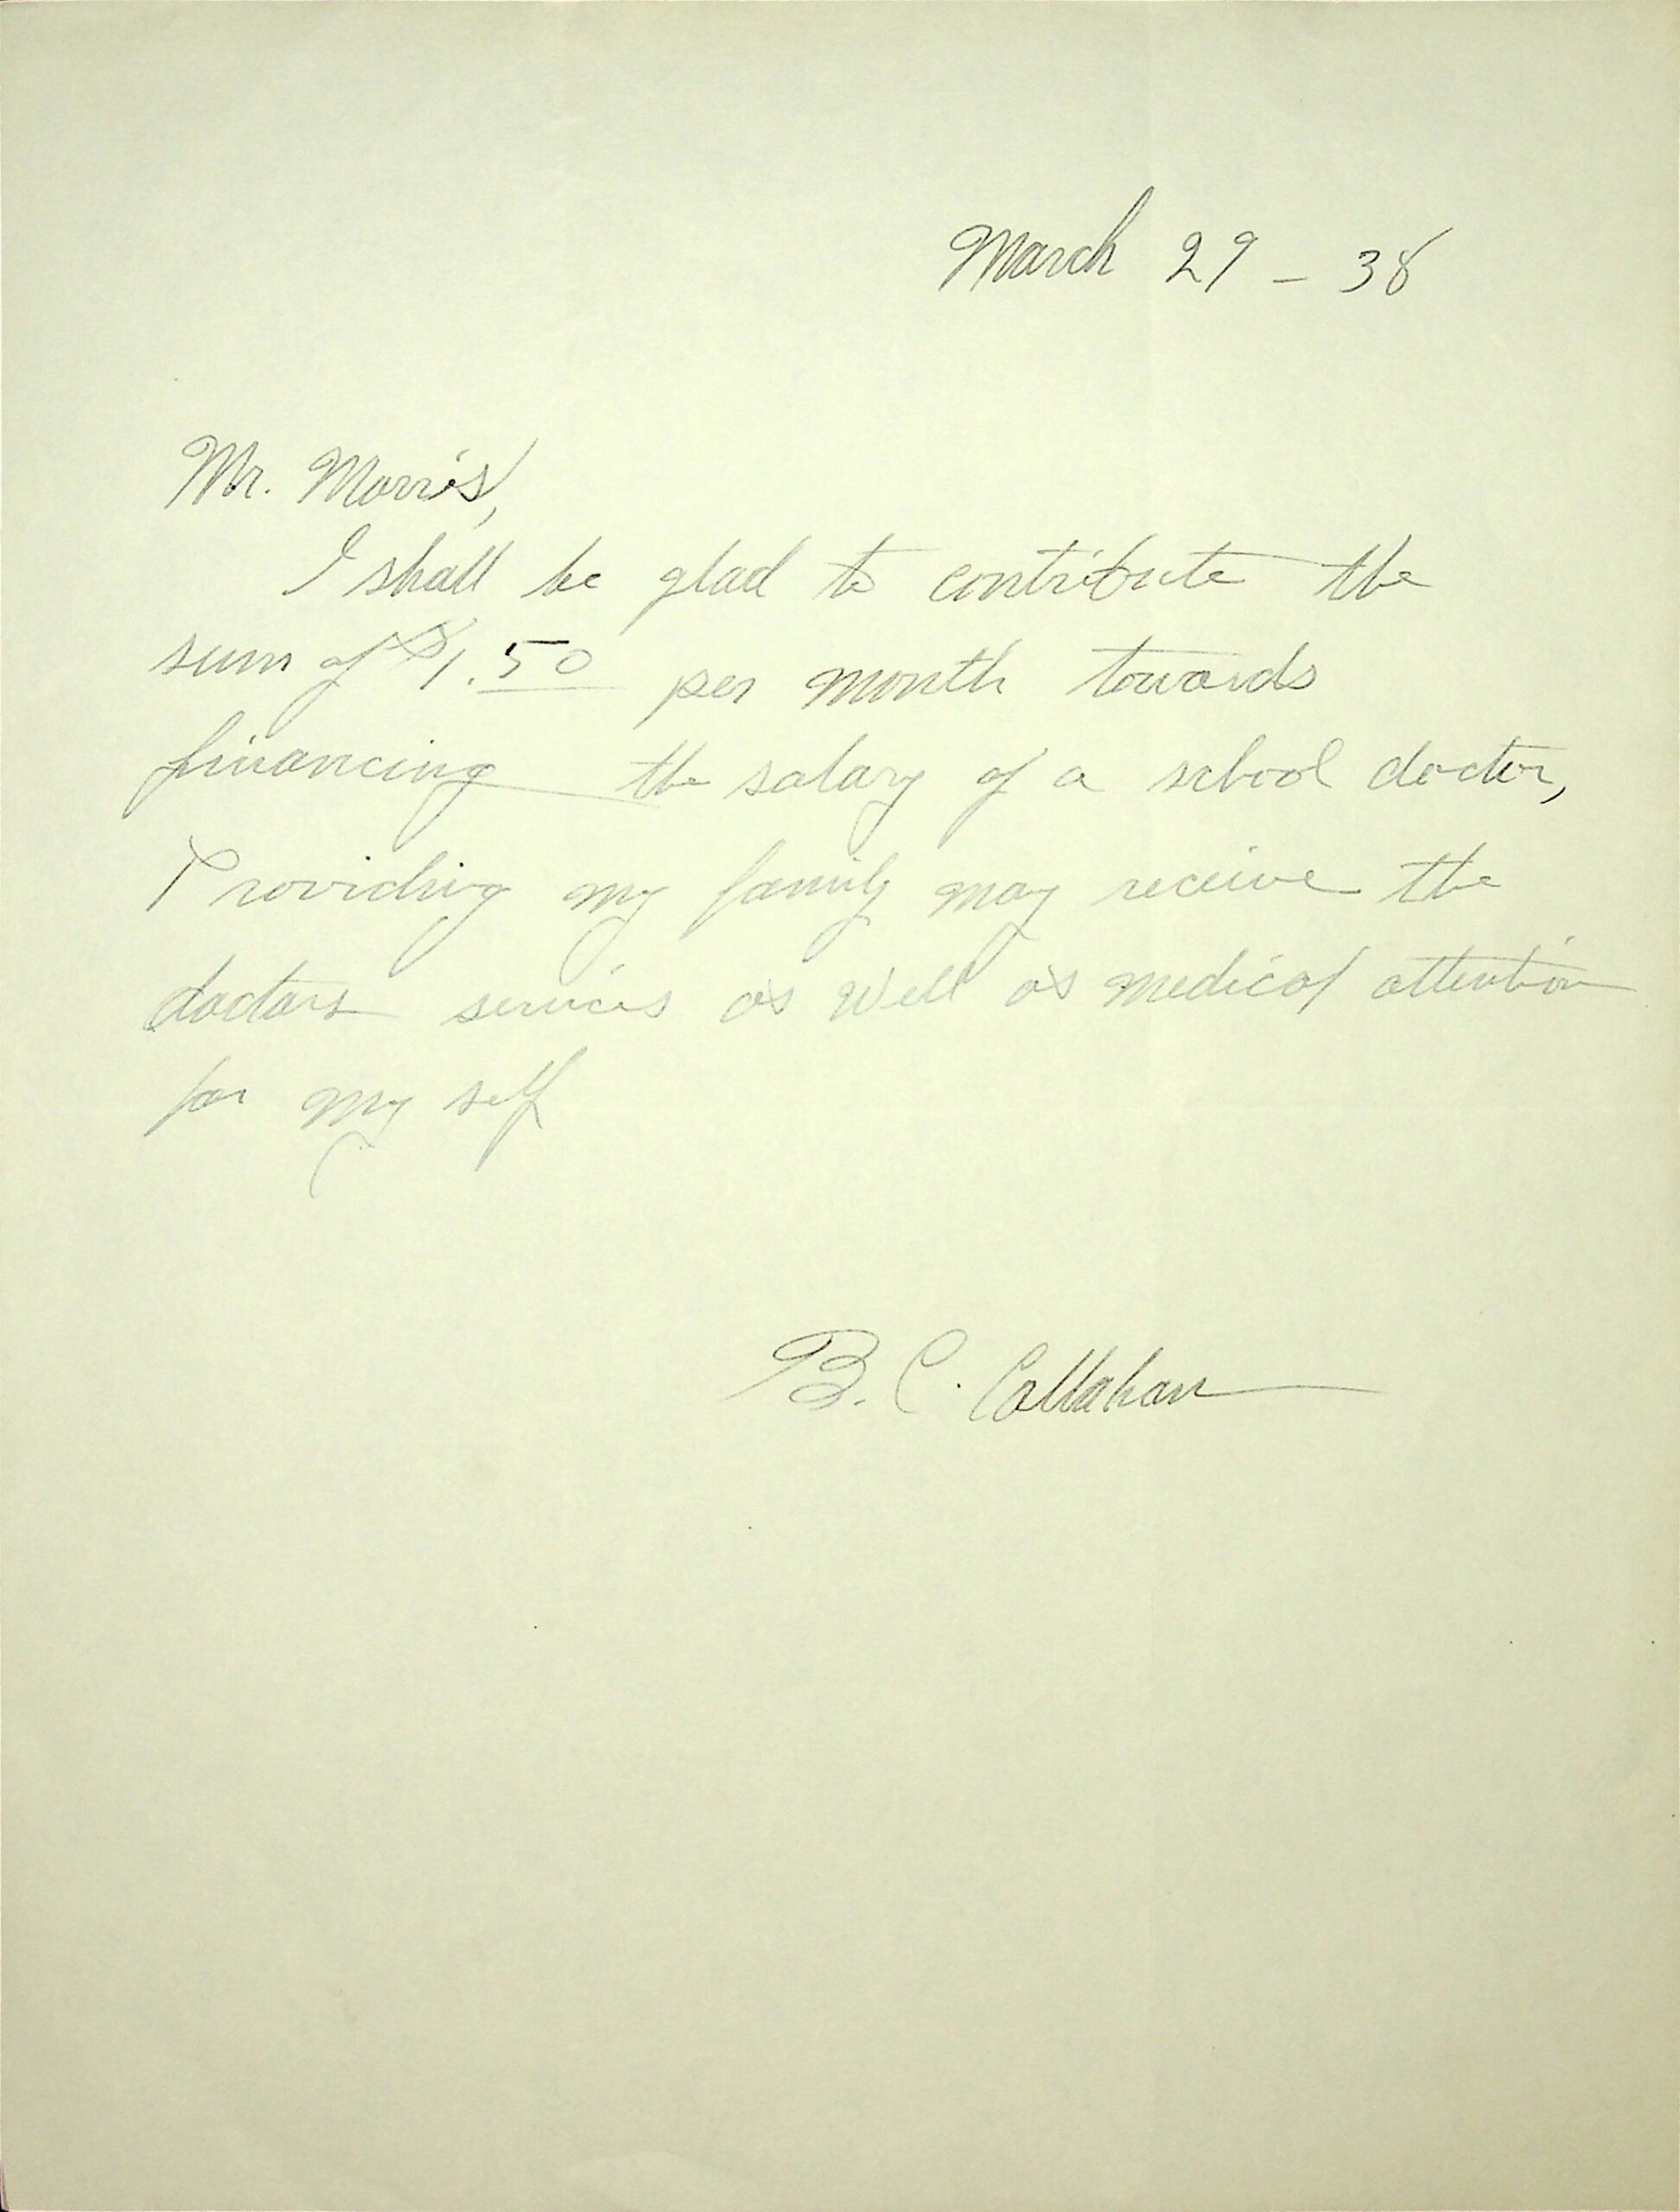 March 29 - 38
Mr. Morris,
I shall be glad to contribute the
sum of $1.50 per month towards
financing the salary of a school doctor,
Providing my family may receive the
doctors services as well as medical attention
for my self
B. C. Callahan